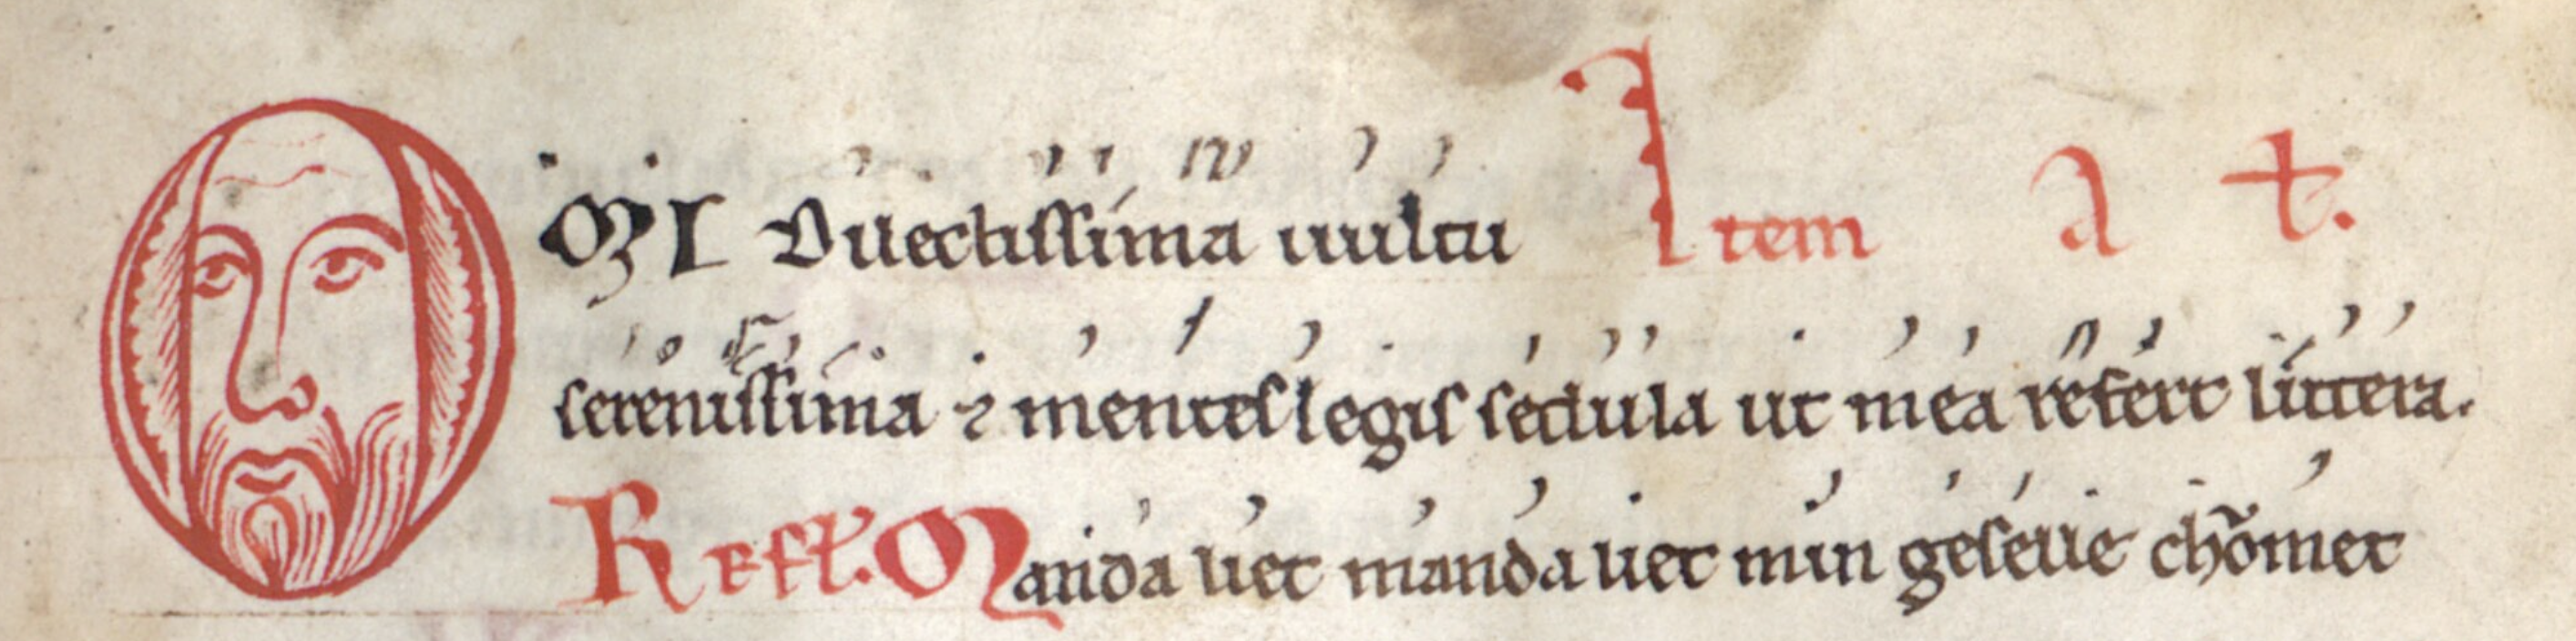 OMI Dilectissima uultu Item a t.
serenissima ⁊ mentes legis sedula ut mea refert littera.
Refl. Manda liet manda liet min geselle chõmet